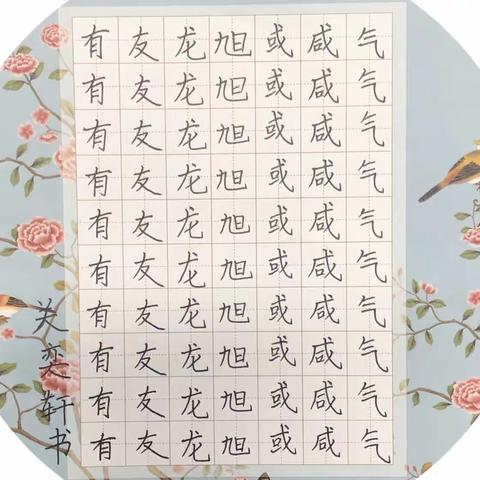 有友龙旭或咸气
有友龙旭或咸气
有友龙旭或咸气
有友龙旭或咸气
有友龙旭或咸气
有友龙旭或咸气
有友龙旭或咸气
有友龙旭或咸气
有友龙旭或咸气
有友龙旭或咸气
关奕轩书